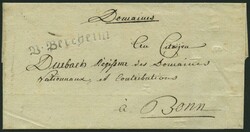 Domaines
B. Bergheim
Au Citoyen
Durbach Régisseur des Domaines
nationaux et Contributions
à Bonn